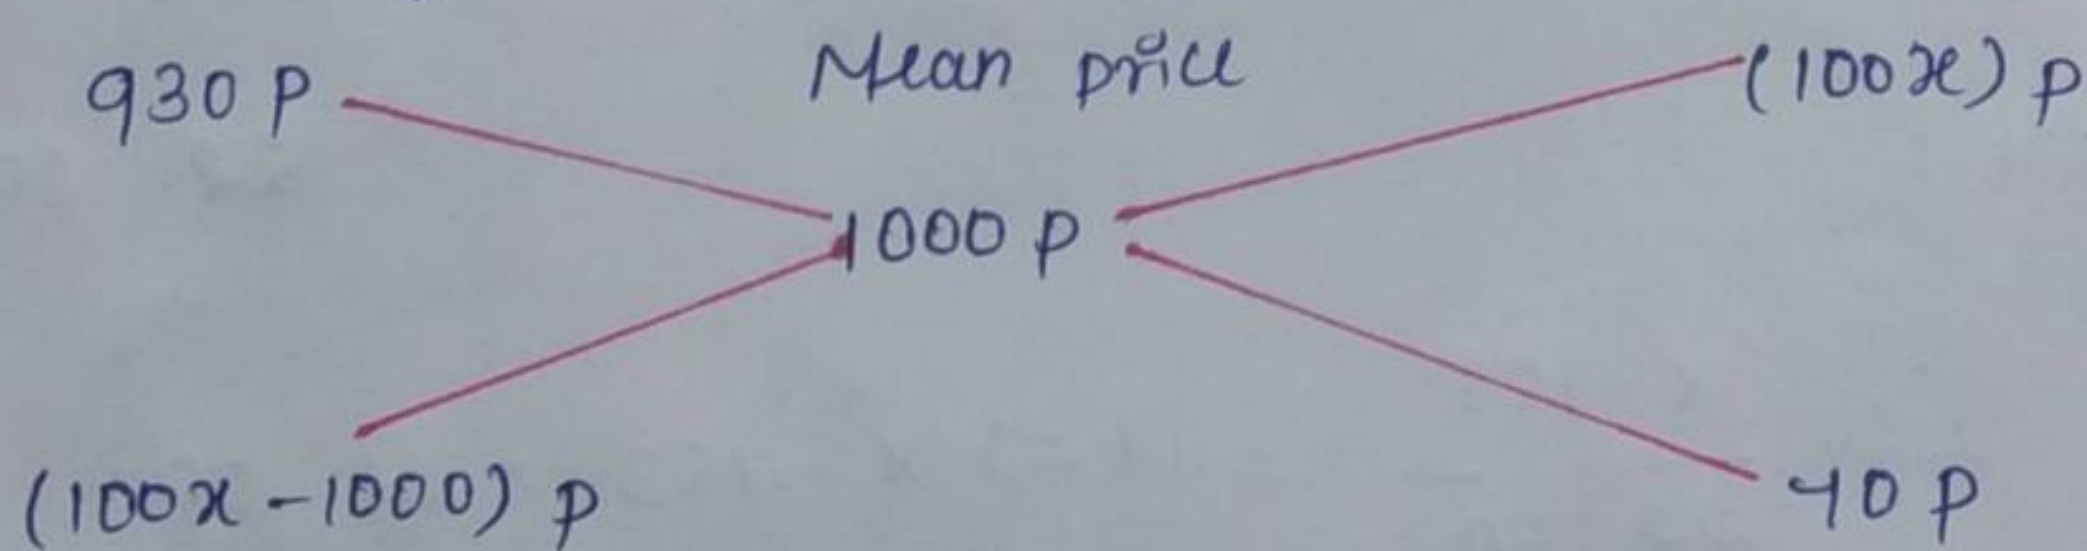 930 P Mean price (100x) p
1000 p
(100x - 1000) p 70 p